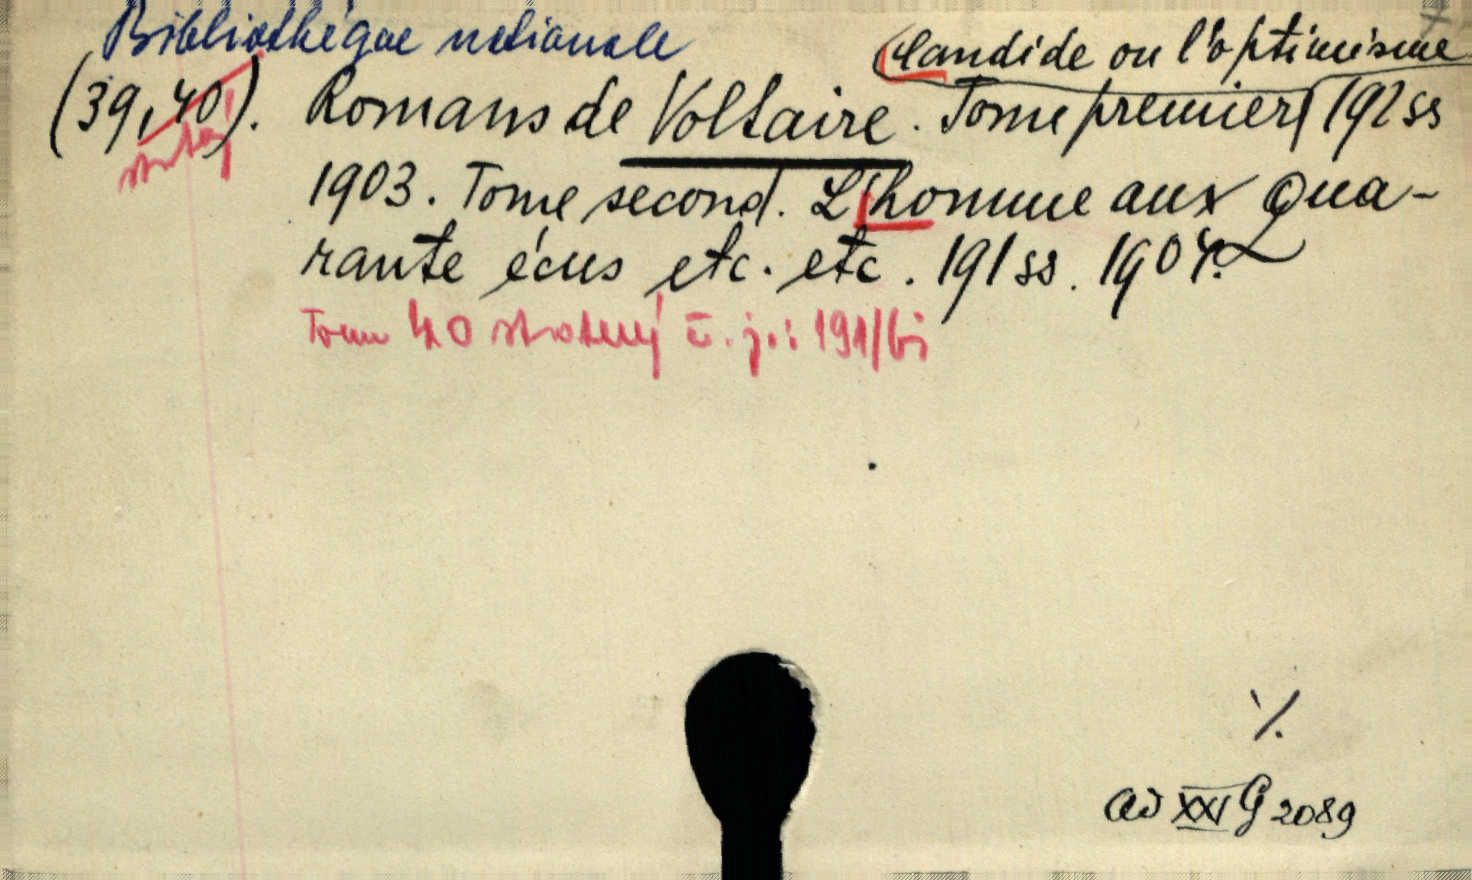 Bibliothéque nationale
Candide ou l'optimisme
(39,40). Romans de Voltaire. Tome premier 192 ss
1903. Tome second. L'homme aux Qua-
rante écus etc. etc. 191 ss. 1904.
Tom 40 stratený č. j.: 191/
ad XXI G 2089